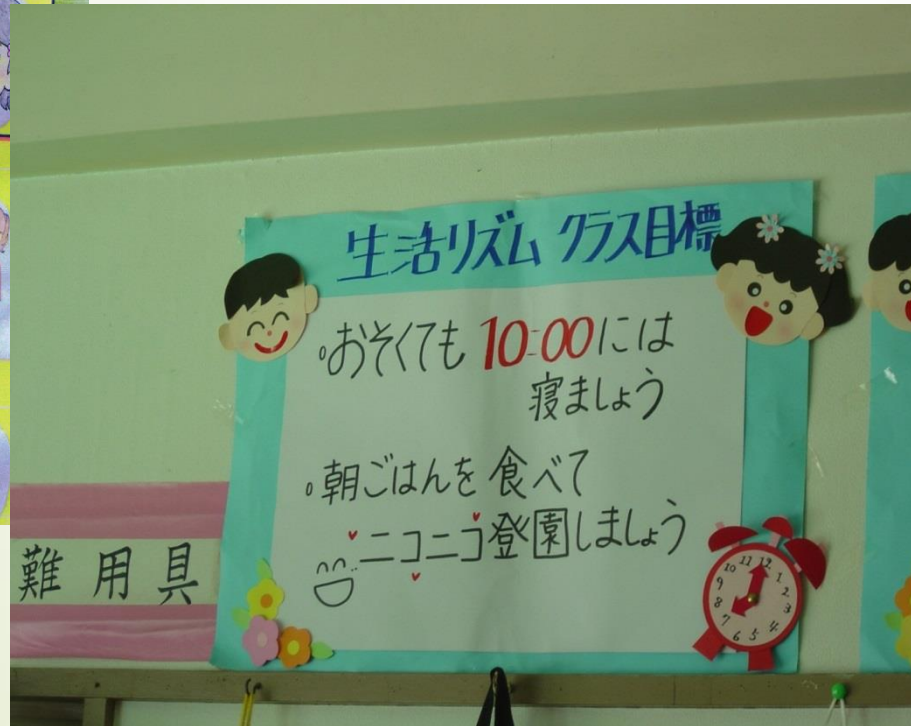 生活リズム クラス目標
。おそくても 10:00には
寝ましょう
。朝ごはんを 食べて
ニコニコ登園しましょう
難 用 具
12
1
2
3
4
5
6
7
8
9
10
11